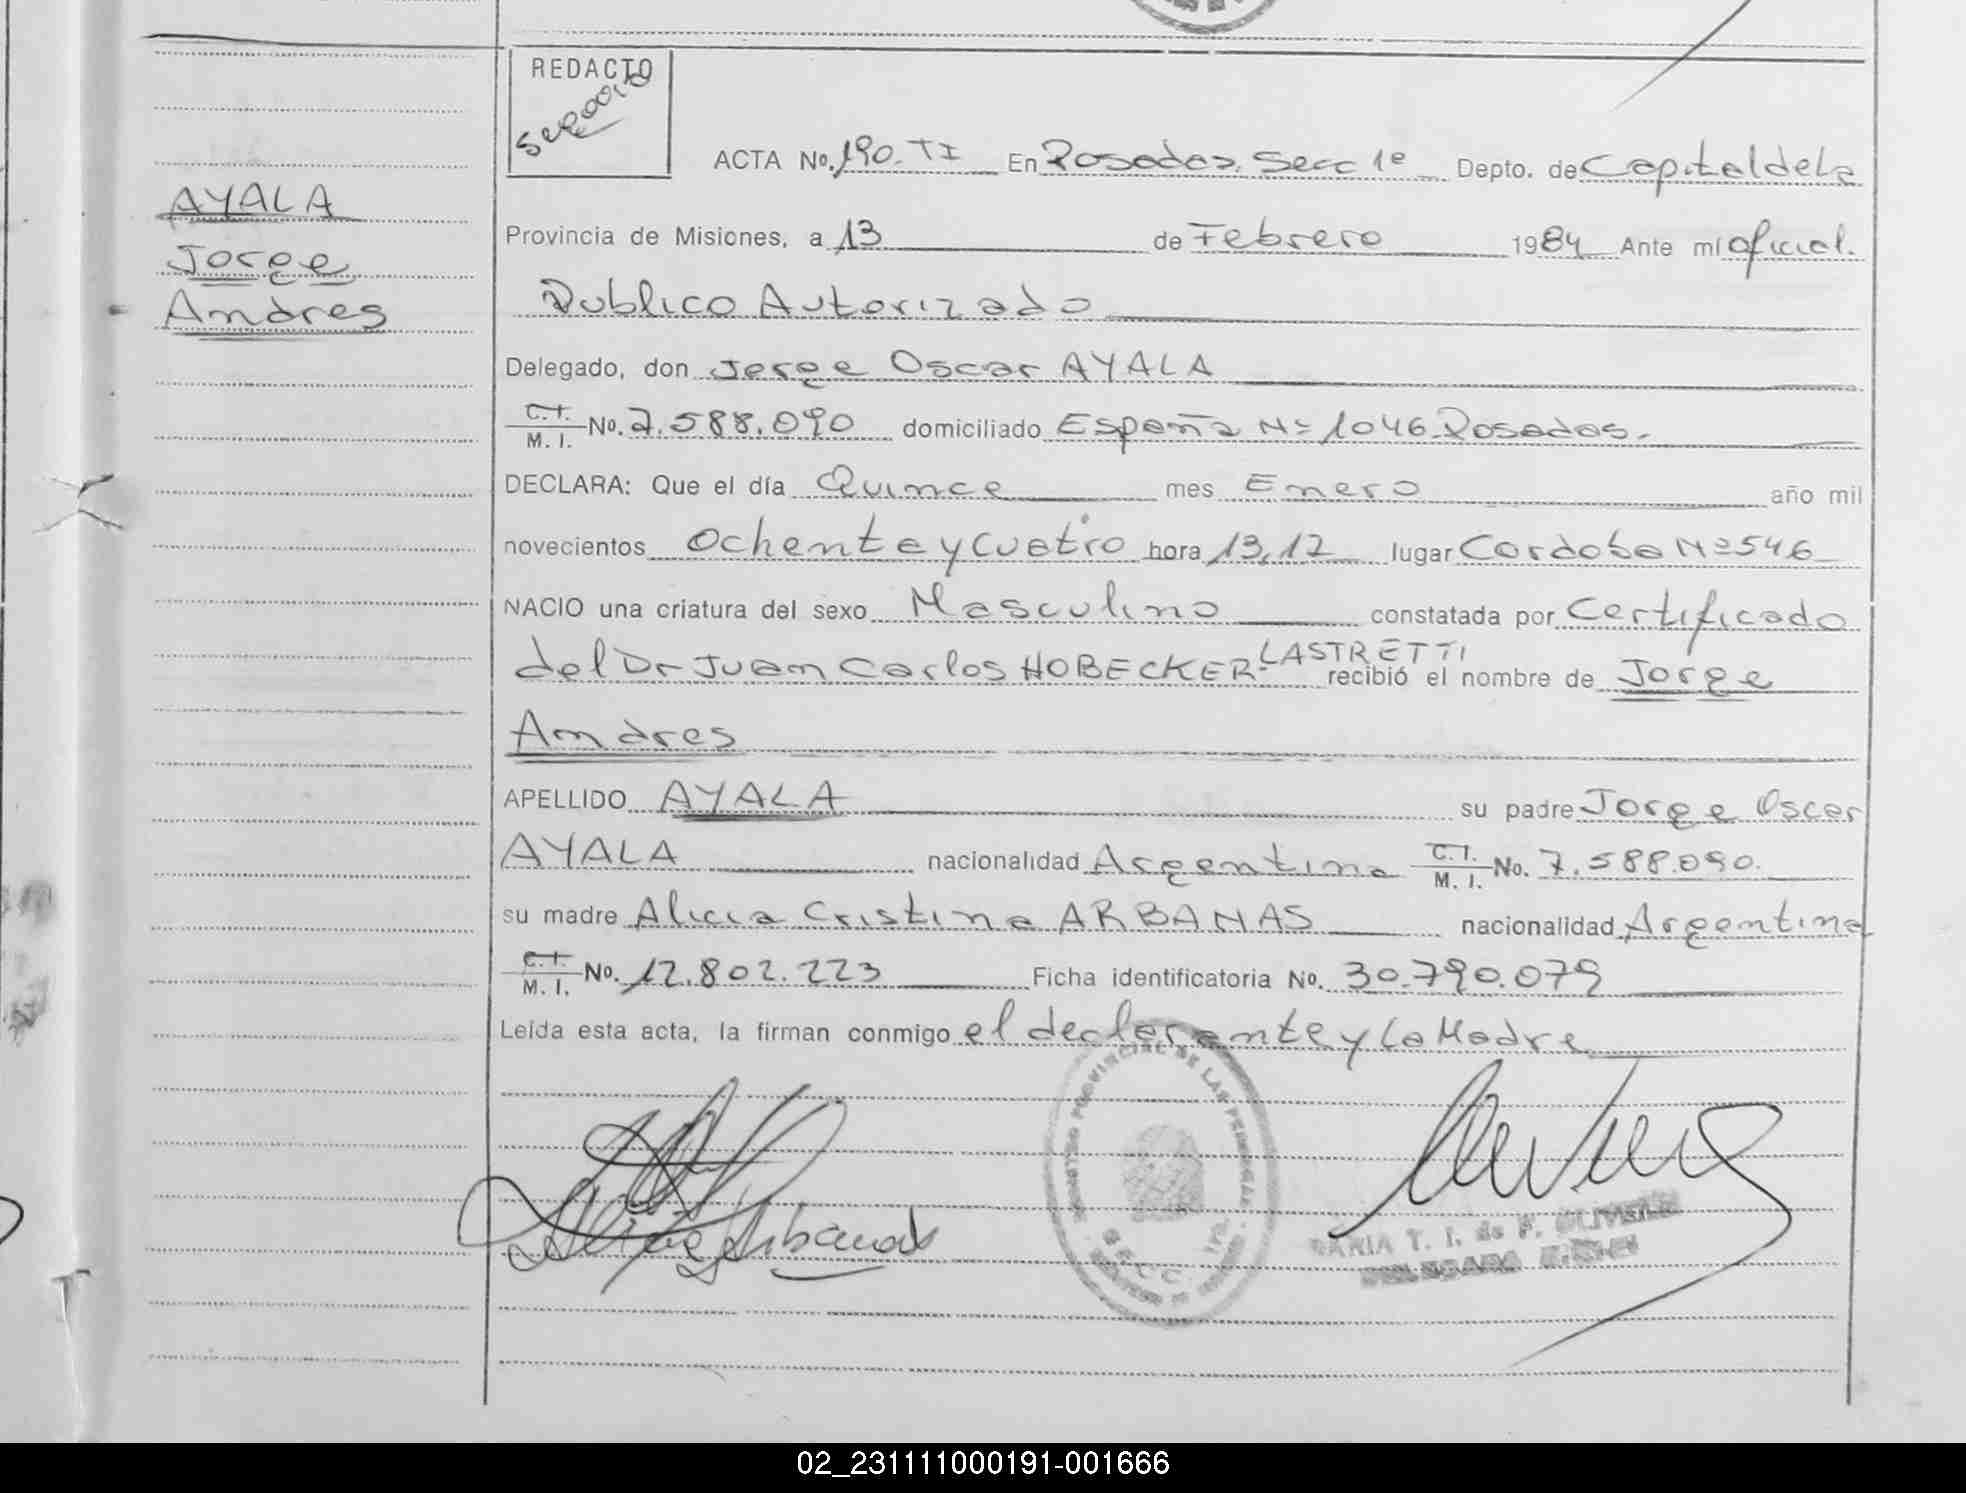 REDACTO
AYALA
Jorge
Andres
ACTA No. 190. TI En Posadas. Secc 1ª Depto. de Capital de la
Provincia de Misiones, a 13 de Febrero 1984 Ante mí oficial.
Publico Autorizado
Delegado, don Jorge Oscar AYALA
C.I. M. I. No. 7.588.090 domiciliado España Nº 1046. Posadas.
DECLARA: Que el día Quince mes Enero año mil
novecientos Ochenta y Cuatro hora 13,12 lugar Cordoba Nº 546
NACIO una criatura del sexo Masculino constatada por Certificado
del Dr Juan Carlos HOBECKER LASTRETTI recibió el nombre de Jorge
Andres
APELLIDO AYALA su padre Jorge Oscar
AYALA nacionalidad Argentina C.I. M. I. No. 7.588.090.
su madre Alicia Cristina ARBANAS nacionalidad Argentina
C.I. M. I. No. 12.802.223 Ficha identificatoria No. 30.790.079
Leída esta acta, la firman conmigo el declarante y La Madre
REGISTRO PROVINCIAL DE LAS PERSONAS
SECC.
Alicia Arbanas
MARIA T. I. de F.
02_231111000191-001666